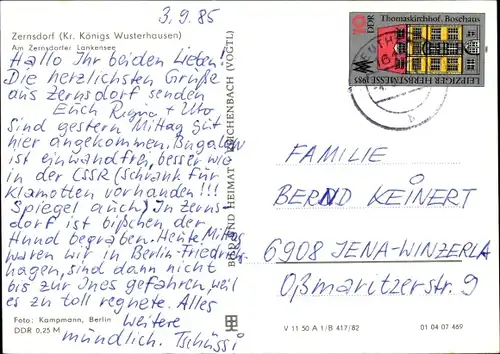 3.9.85
Zernsdorf (Kr. Königs Wusterhausen)
Am Zernsdorfer Lankensee
Hallo Ihr beiden Lieben!
Die herzlichsten Grüße
aus Zernsdorf senden
Euch Regina + Uto
Sind gestern Mittag gut
hier angekommen. Bugalow
ist einwandfrei, besser wie
in der CSSR (Schrank für
Klamotten vorhanden!!!
Spiegel auch). In Zerns-
dorf ist bißchen der
Hund begraben. Heute Mittag
waren wir in Berlin-Friedrichs-
hagen, sind dann nicht
bis zur Ines gefahren, weil
es zu toll regnete. Alles
weitere
mündlich. Tschüssi
Foto: Kampmann, Berlin
DDR 0,25 M
BILD UND HEIMAT REICHENBACH (VOGTL)
10 DDR
Thomaskirchhof, Boschaus
LEIPZIGER HERBSTMESSE 1985
FAMILIE
BERND KEINERT
6908 JENA-WINZERLA
Oßmaritzerstr. 9
V 11 50 A 1/B 417/82
01 04 07 469